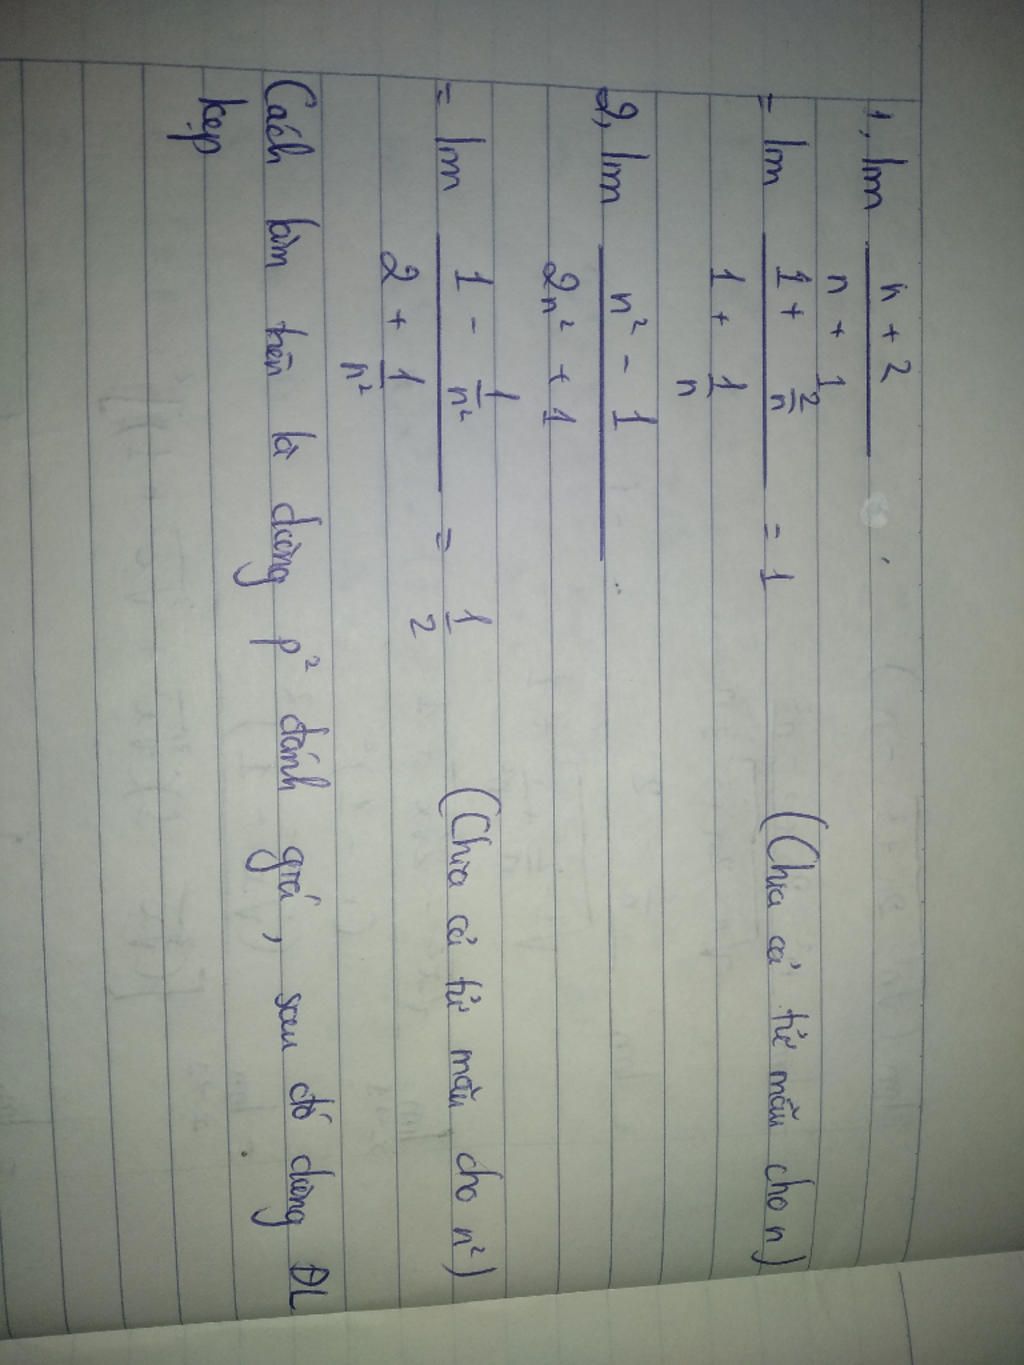 1, lim n + 2 / n + 1
= lim 1 + 2/n / 1 + 1/n = 1 (Chia cả tử mẫu cho n)
2, lim n² - 1 / 2n² + 1
= lim 1 - 1/n² / 2 + 1/n² = 1/2 (Chia cả tử mẫu cho n²)
Cách làm trên là dùng p² đánh giá, sau đó dùng ĐL
kẹp